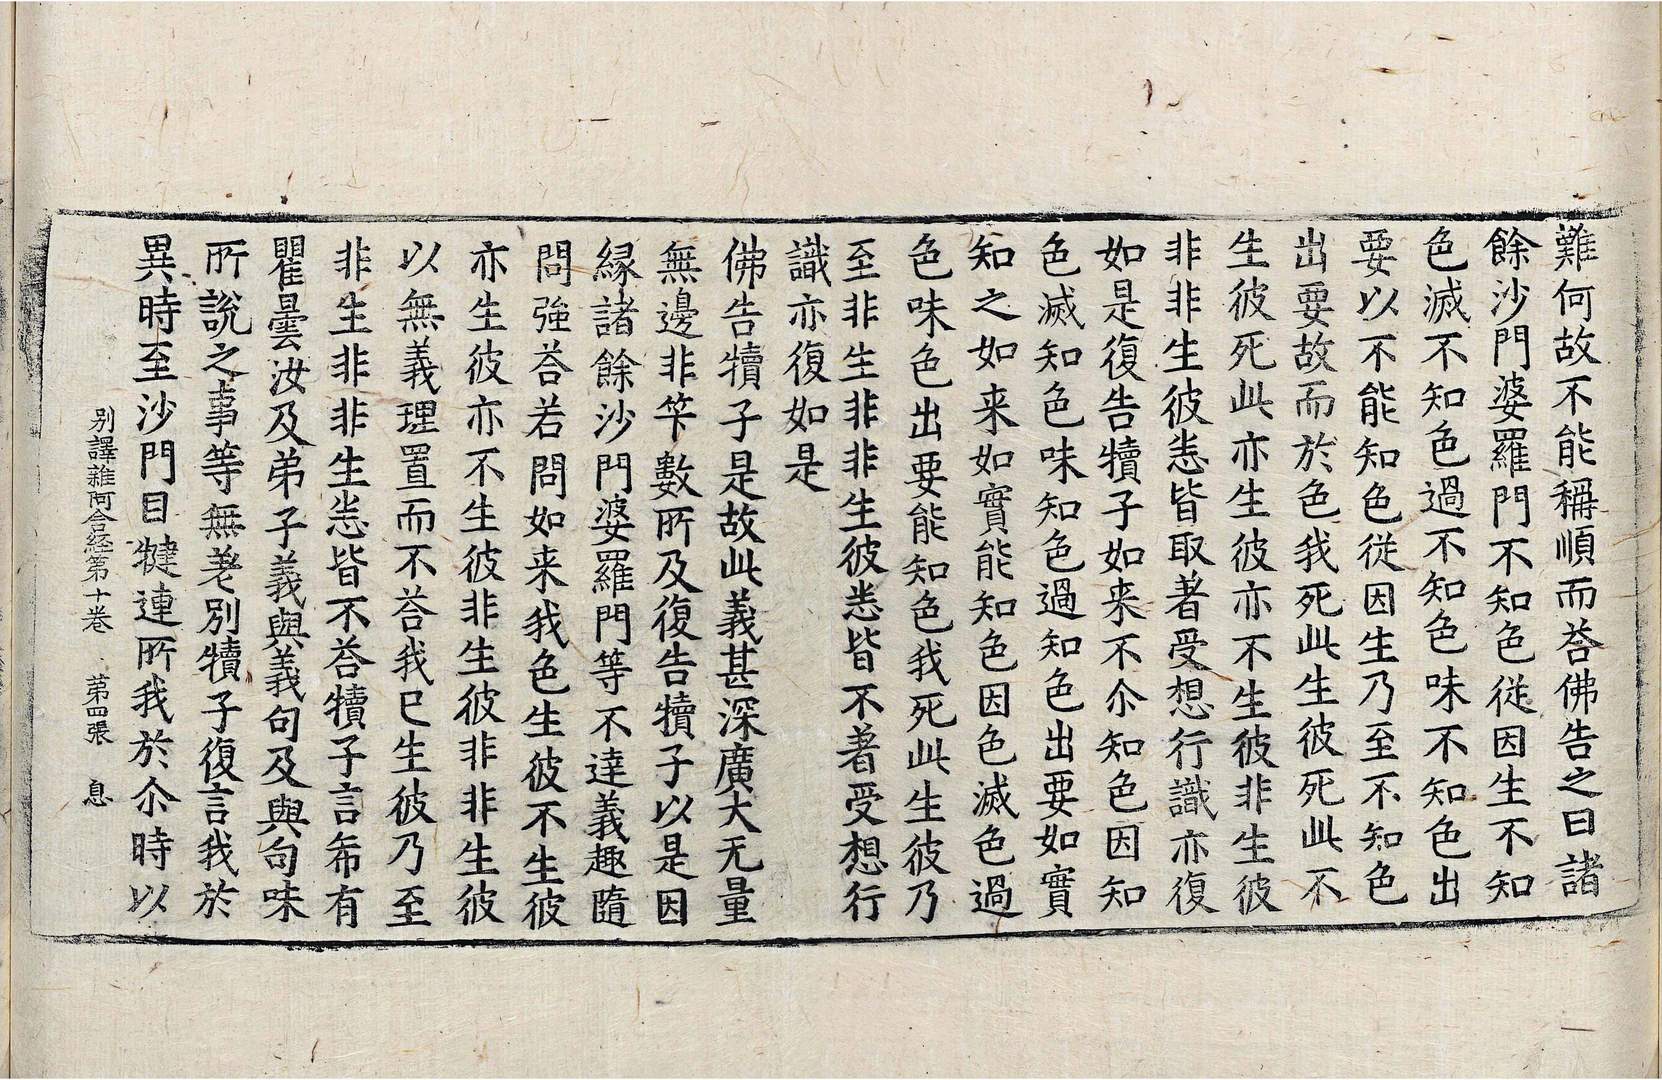 難何故不能稱順而荅佛告之曰諸
餘沙門婆羅門不知色従因生不知
色滅不知色過不知色味不知色出
要以不能知色従因生乃至不知色
出要故而於色我死此生彼死此不
生彼死此亦生彼亦不生彼非生彼
非非生彼悉皆取著受想行識亦復
如是復告犢子如来不尒知色因知
色滅知色味知色過知色出要如實
知之如来如實能知色因色滅色過
色味色出要能知色我死此生彼乃
至非生非非生彼悉皆不著受想行
識亦復如是
佛告犢子是故此義甚深廣大无量
無邊非笇數所及復告犢子以是因
縁諸餘沙門婆羅門等不達義趣隨
問強荅若問如来我色生彼不生彼
亦生彼亦不生彼非生彼非非生彼
以無義理置而不荅我已生彼乃至
非生非非生悉皆不荅犢子言希有
瞿曇汝及弟子義與義句及與句味
所說之事等無差別犢子復言我於
異時至沙門目揵連所我於尒時以
别譯雜阿含経第十卷 第四張 息